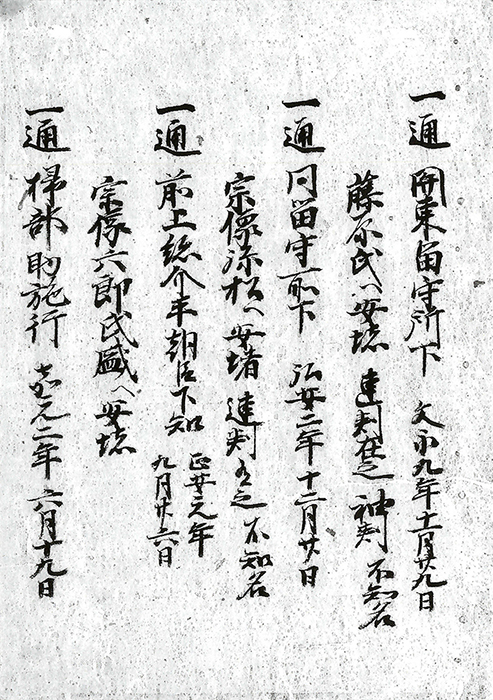 一通 関東留守所下 文永九年十一月廿九日
藤原氏へ安堵 連判在之 神判 不知名
一通 同留守所下 弘安二年十二月廿日
宗像弥松へ安堵 連判有之 不知名
一通 前上総介平朝臣下知 正安元年九月廿六日
宗像六郎氏盛へ安堵
一通 掃部助施行 嘉元二年六月十九日